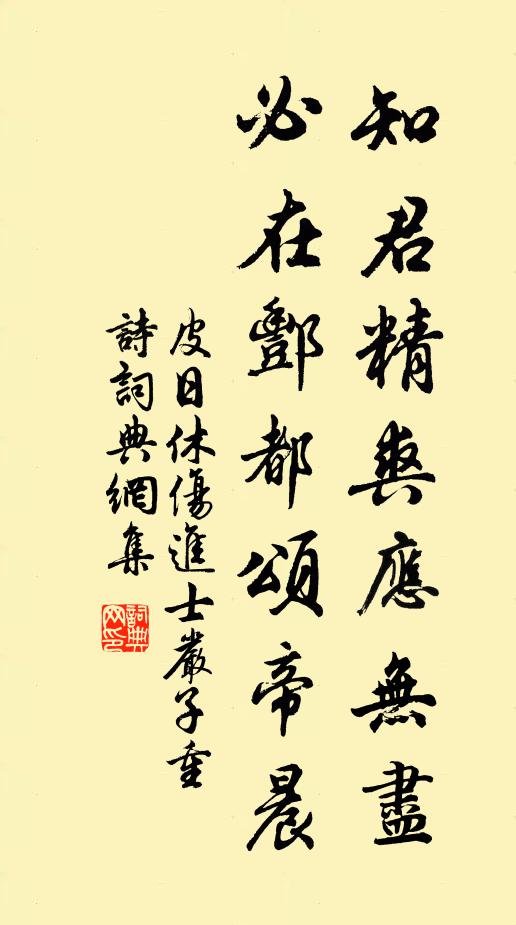 知君精爽應無盡
必在酆都頌帝晨
皮日休傷進士嚴子重
詩詞典網集
詞典
网印